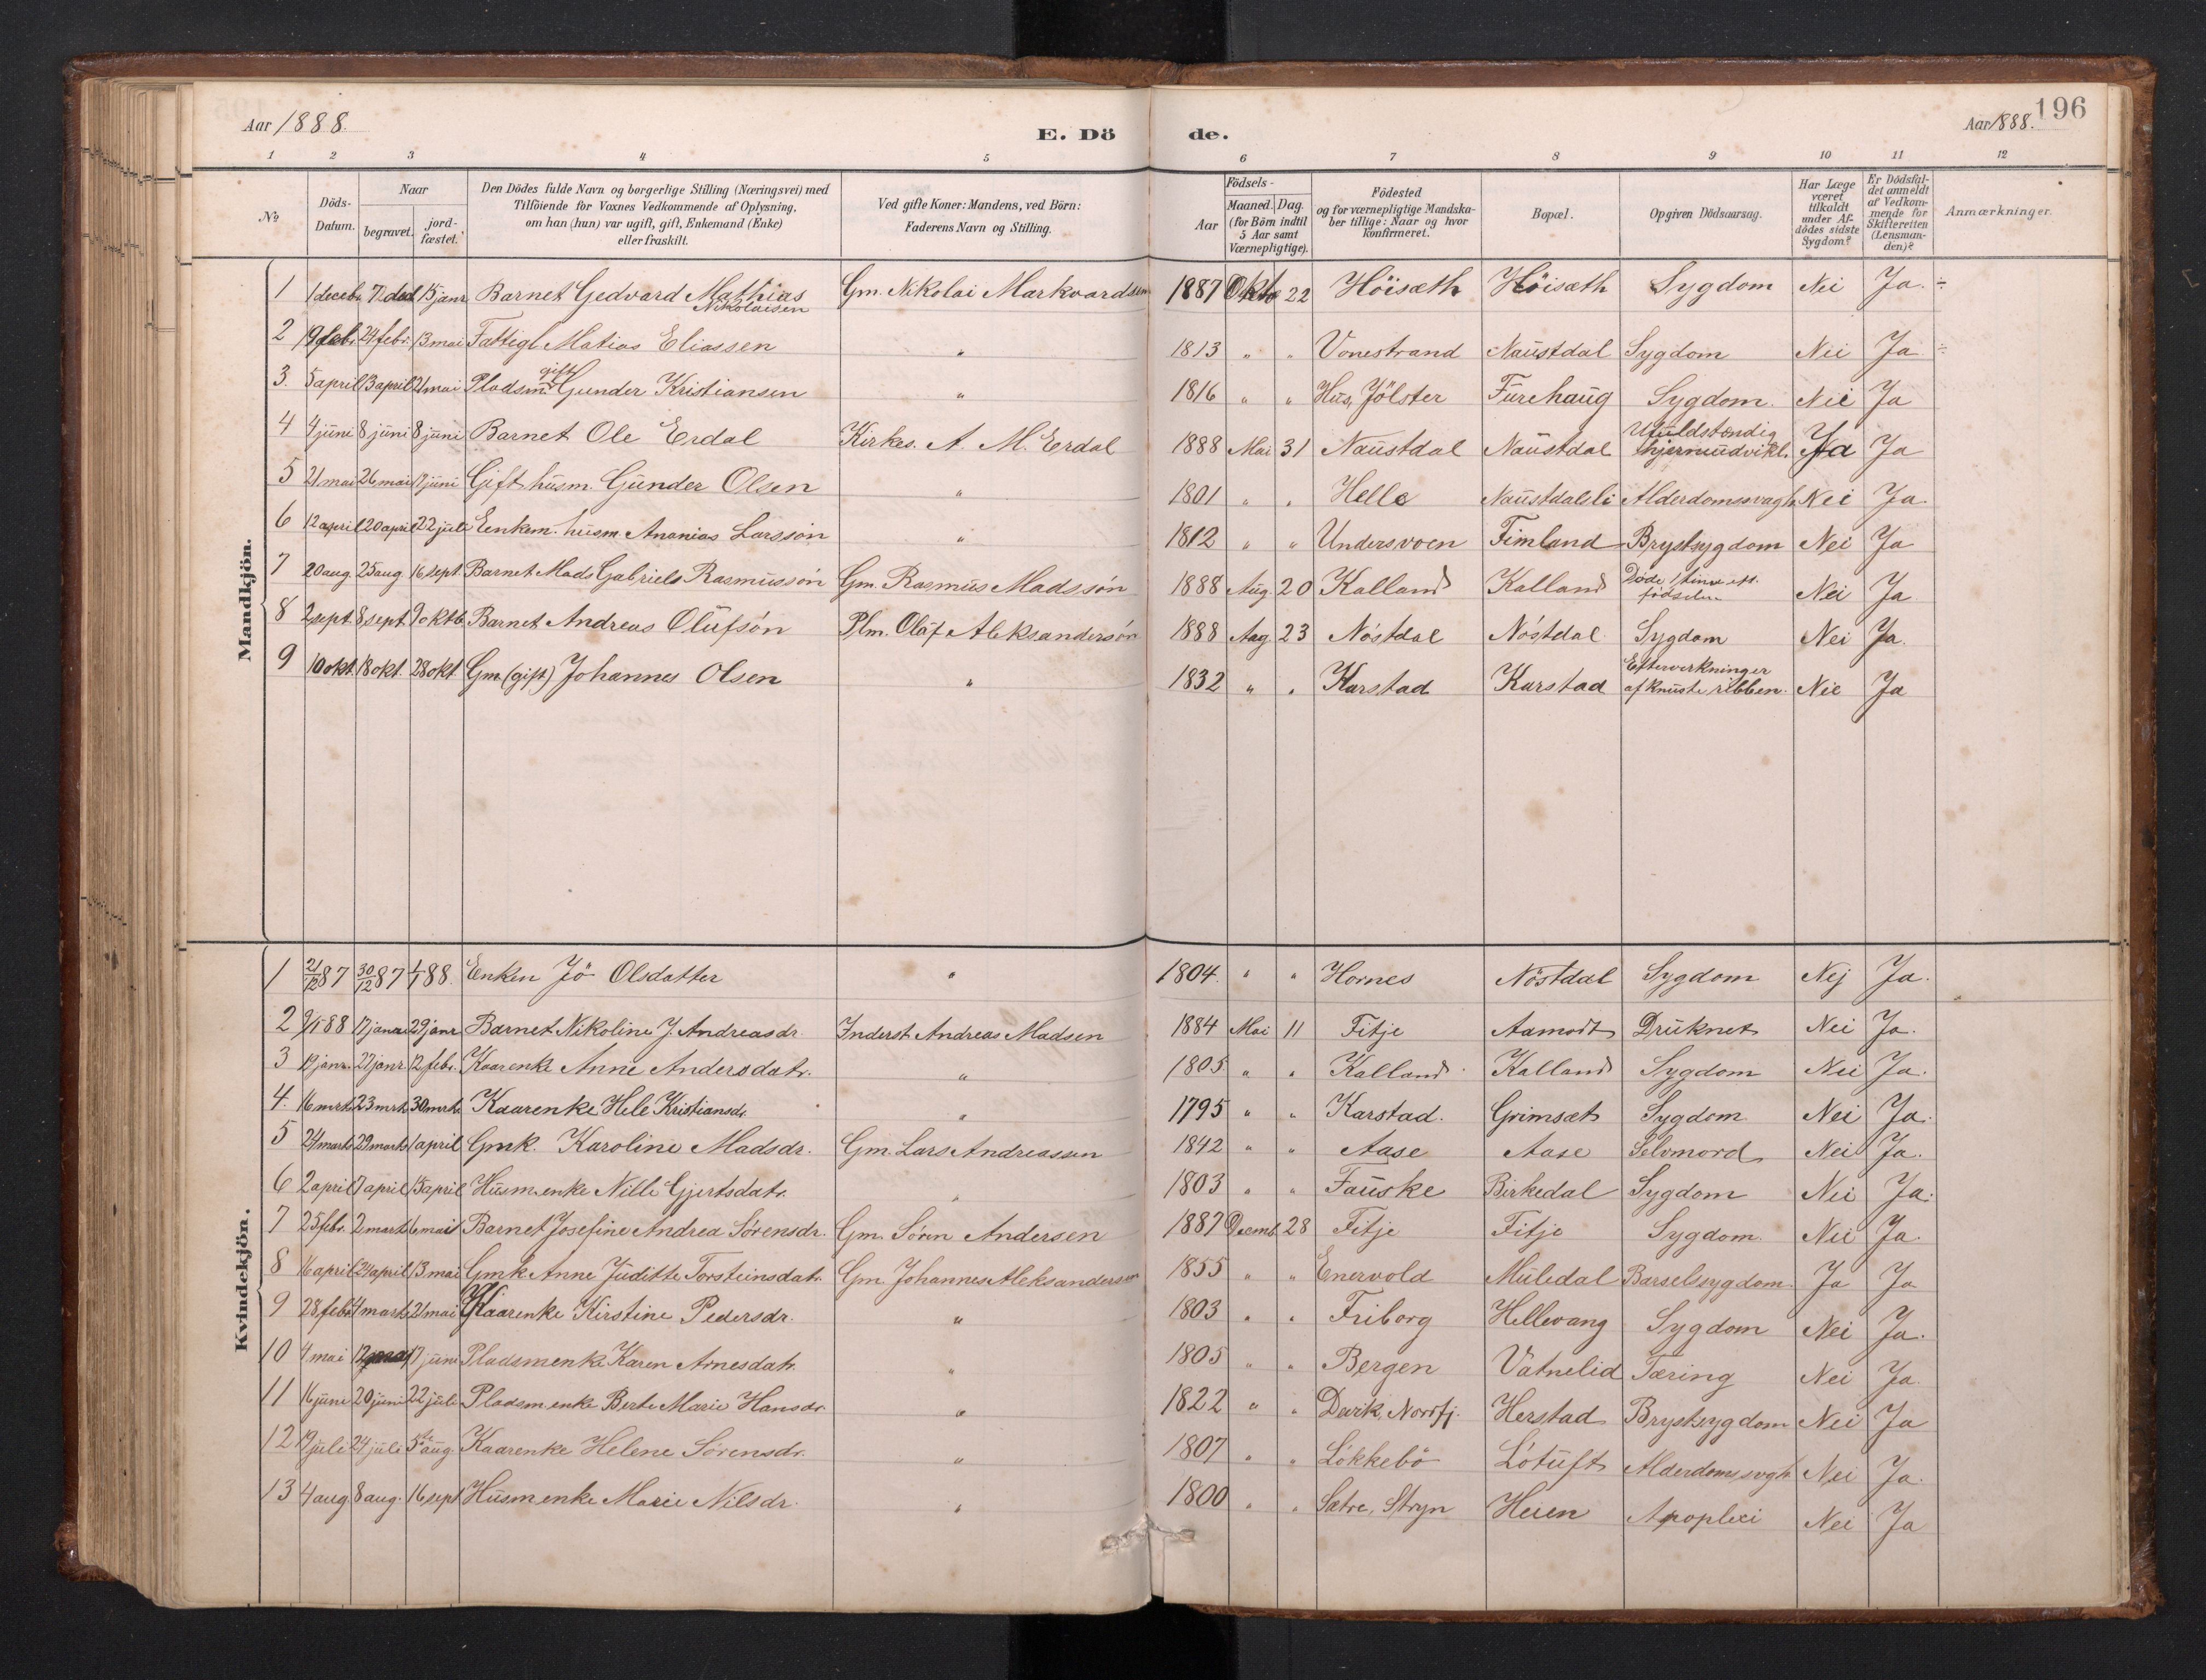 Aar 1888.
E. Dö de.
Aar 1888. 196
1 2 3 4 5 6 7 8 9 10 11 12
№
Döds-Datum.
Naar begravet. jord-fæstet.
Den Dödes fulde Navn og borgerlige Stilling (Næringsvei) med Tilföiende for Voxnes Vedkommende af Oplysning, om han (hun) var ugift, gift, Enkemand (Enke) eller fraskilt.
Ved gifte Koner: Mandens, ved Börn: Faderens Navn og Stilling.
Födsels- Aar Maaned. Dag. (for Börn indtil 5 Aar samt Værnepligtige).
Födested og for værnepligtige Mandskaber tillige: Naar og hvor konfirmeret.
Bopæl.
Opgiven Dödsaarsag.
Har Læge været tilkaldt under Afdödes sidste Sygdom?
Er Dödsfaldet anmeldt af Vedkommende for Skifteretten (Lensmanden)?
Anmærkninger.
Mandkjön.
1 1 decebr 7 ded 15 janr Barnet Gedvard Mathias Nikolaisen Gm. Nikolai Markvardsen 1887 Oktb 22 Höisæth Höisæth Sygdom Nei Ja. ÷
2 19 febr 24 febr. 13 mai Fattigl. Matias Eliassen " 1813 " " Vonestrand Naustdal Sygdom Nei Ja ÷
3. 5 april 13 april 21 mai Pladsm. gift Gunder Kristiansen " 1816 " " Hus, Jölster Furehaug Sygdom. Nei Ja
4 4 juni 8 juni 8 juni Barnet Ole Erdal Kirkes. A. M. Erdal 1888 Mai 31 Naustdal Naustdal Ufuldstændig hjerneudvikl. Ja Ja
5 21 mai 26 mai 17 juni Gift husm. Gunder Olsen " 1801 " " Helle Naustdalsli Alderdomssvagh. Nei Ja.
6 12 april 20 april 22 juli Eenkem. husm. Ananias Larssøn " 1812 " " Undersvoen Timland Brystsygdom Nei Ja
7 20 aug. 25 aug. 16 sept. Barnet Mads Gabriels Rasmussøn Gm. Rasmus Madssøn 1888 Aug. 20 Kalland Kalland Døde 1 time eft. fødselen Nei Ja
8 2 sept. 8 sept. 9 oktb. Barnet Andreas Olufsøn Plm. Oluf Aleksandersøn 1888 Aug. 23 Nöstdal Nöstdal Sygdom Nei Ja.
9 10 okt. 18 okt. 28 okt Gm. (gift) Johannes Olsen " 1832 " " Karstad Karstad Eftervirkninger af knuste ribben. Nei Ja
Kvindekjön.
1 21/12 87 30/12 87 1/1 88. Enken Jö Olsdatter " 1804. " " Hornes Nöstdal Sygdom Nej Ja.
2 9/1 88 17 janr 29 janr Barnet Nikoline J. Andreasdr. Inderst Andreas Madsen 1884 Mai 11 Fitje Aamodt Druknet Nei Ja.
3 19 janr. 27 janr. 12 febr. Kaarenke Anne Andersdatr. " 1805 " " Kalland Kalland Sygdom Nei Ja.
4. 16 mrts 23 mrts 30 mrts Kaarenke Hele Kristiansdr. " 1795 " " Karstad. Grimsæt Sygdom Nei Ja.
5 24 marts 29 marts 1 april Gmk. Karoline Madsdr. Gm. Lars Andreassen 1842 " " Aase Aase Selvmord Nei Ja.
6 2 april 7 april 15 april Husmenke Nille Gjertsdatr. " 1803 " " Fauske Birkedal Sygdom Nei Ja.
7 25 febr. 2 marts 6 mai Barnet Josefine Andrea Sørensdr. Gm. Sørin Andersen 1887 Decemb 28 Fitje Fitje Sygdom. Nei Ja.
8 16 april 24 april 13 mai Gmk Anne Juditte Torsteinsdatr. Gm. Johannes Aleksandersen 1855 " " Enervold Muledal Barselsygdom. Ja Ja
9 28 febr. 4 marts 21 mai Kaarenke Kirstine Pedersdr. " 1803 " " Friborg Hellevang Sygdom Nei Ja.
10 4 mai 12 17 juni Pladsmenke Karen Arnesdatr. " 1805 " " Bergen Vatnelid Tæring Nei Ja.
11 16 juni 20 juni 22 juli Pladsmenke Berte Marie Hansdr. " 1822 " " Davik, Nordfj. Herstad Brystsygdom Nei Ja
12 19 juli 24 juli 5te aug. Kaarenke Helene Sørensdr. " 1807 " " Løkkebø Løtuft Alderdomssvgh. Nei Ja.
13 4 aug. 8 aug. 16 sept Husmenke Marie Nilsdr. " 1800 " " Sætre, Stryn Heien Apoplexi Nei Ja